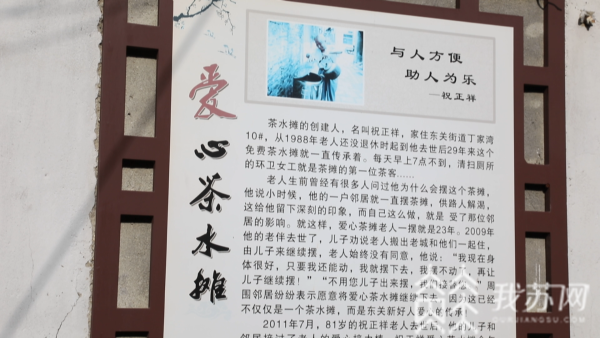 爱心茶水摊
与人方便
助人为乐
——祝正祥
茶水摊的创建人，名叫祝正祥，家住东关街道丁家湾
10#，从1988年老人还没退休时起到他去世后29年来这个
免费茶水摊就一直传承着。每天早上7点不到，清扫厕所
的环卫女工就是茶摊的第一位茶客……
老人生前曾经有很多人问过他为什么会摆这个茶摊，
他说小时候，他的一户邻居就一直摆茶摊，供路人解渴，
这给他留下深刻的印象，而自己这么做，就是 受了那位邻
居的影响。就这样，爱心茶摊老人一摆就是23年。2009年
他的老伴去世了，儿子劝说老人搬出老城和他们一起住，
由儿子来继续摆，老人始终没有同意，他说：“我现在身
体很好，只要我还能动，我就摆下去，我摆不动了，再让
儿子继续摆！”“不用您儿子出来摆，我们
围邻居纷纷表示愿意将爱心茶水摊继续下去，因为这已经
不仅仅是一个茶水摊，而是东关新好人 的传承
2011年7月，81岁的祝正祥老人去世后，他的儿子和
我苏网
OURJIANGSU.COM